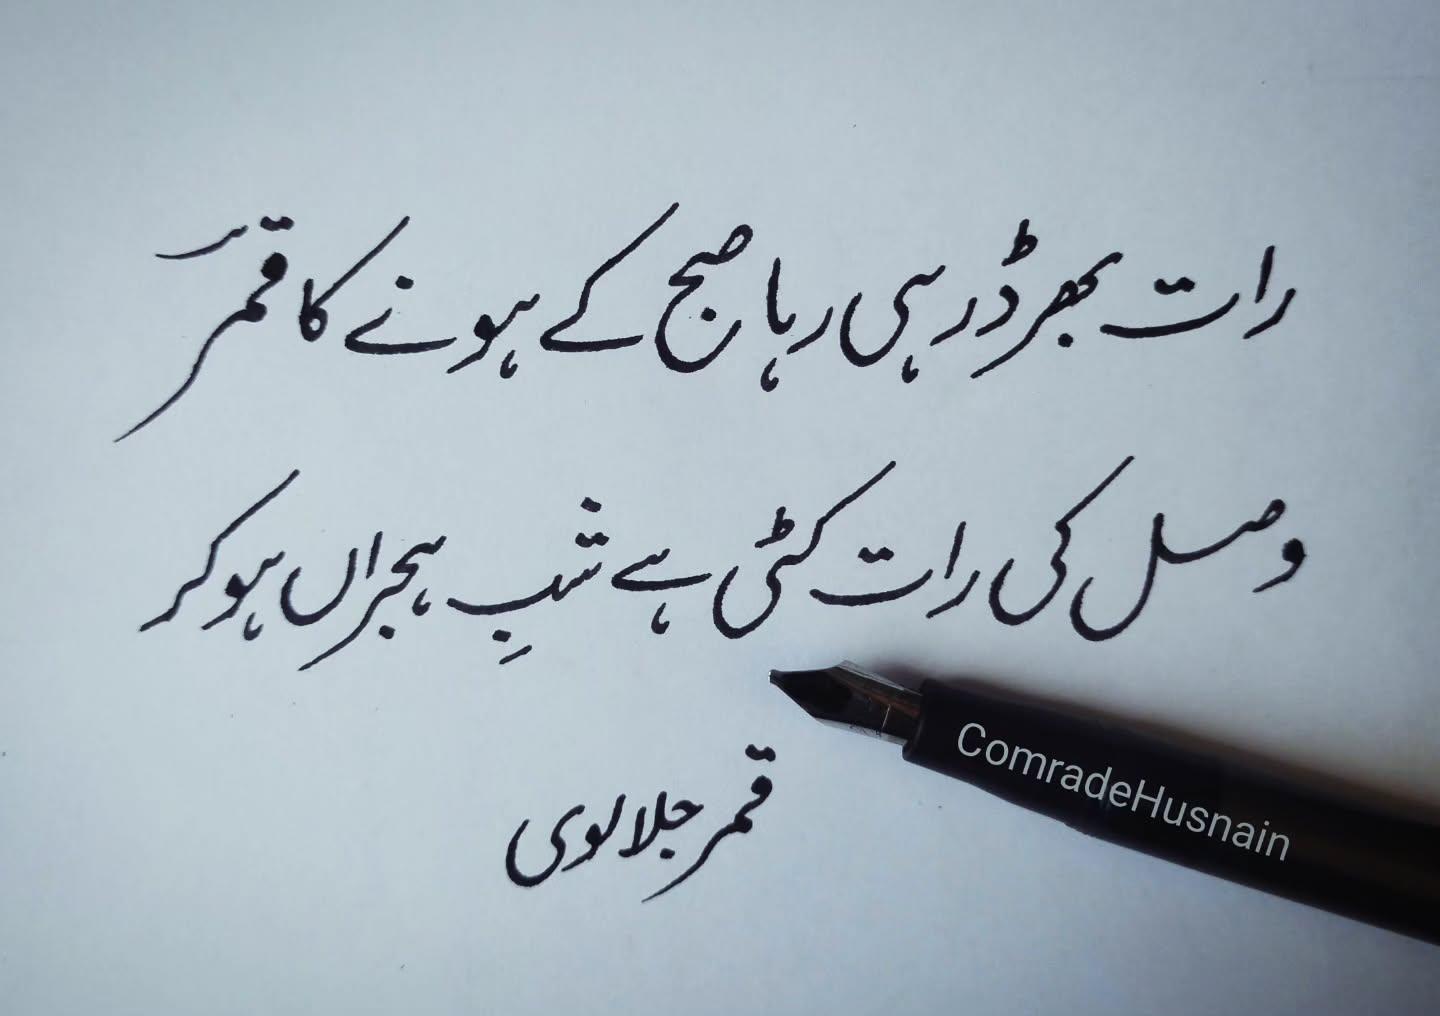 رات بھر ڈر ہی رہا صبح کے ہونے کا قمرؔ
وصل کی رات کٹی ہے شبِ ہجراں ہو کر
قمر جلالوی
ComradeHusnain